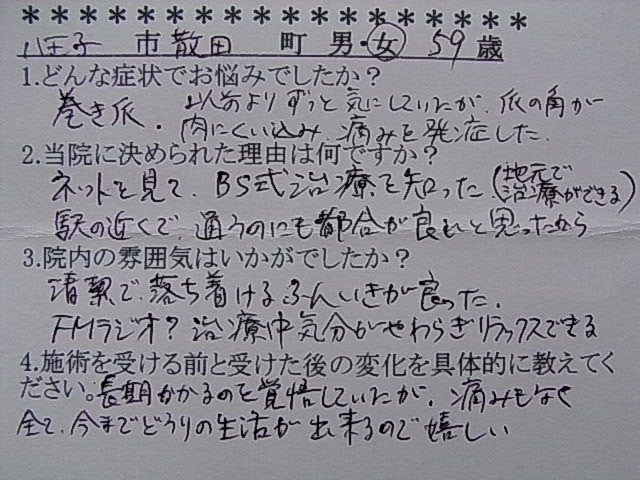 ＊＊＊＊＊＊＊＊＊＊＊＊＊＊＊＊＊＊＊
八王子 市 散田 町 男・女 59 歳
1.どんな症状でお悩みでしたか？
巻き爪・以前よりずっと気にしていたが、爪の角が
肉にくい込み、痛みを発症した
2.当院に決められた理由は何ですか？
ネットを見て、BS式治療を知った(地元で
治療ができる)
駅の近くで、通うのにも都合が良いと思ったから
3.院内の雰囲気はいかがでしたか？
清潔で落ち着けるふんいきが良った。
FMラジオ？治療中気分がやわらぎリラックスできる
4.施術を受ける前と受けた後の変化を具体的に教えてく
ださい。長期かかるのを覚悟していたが、痛みもなく
全て、今までどうりの生活が出来るので嬉しい